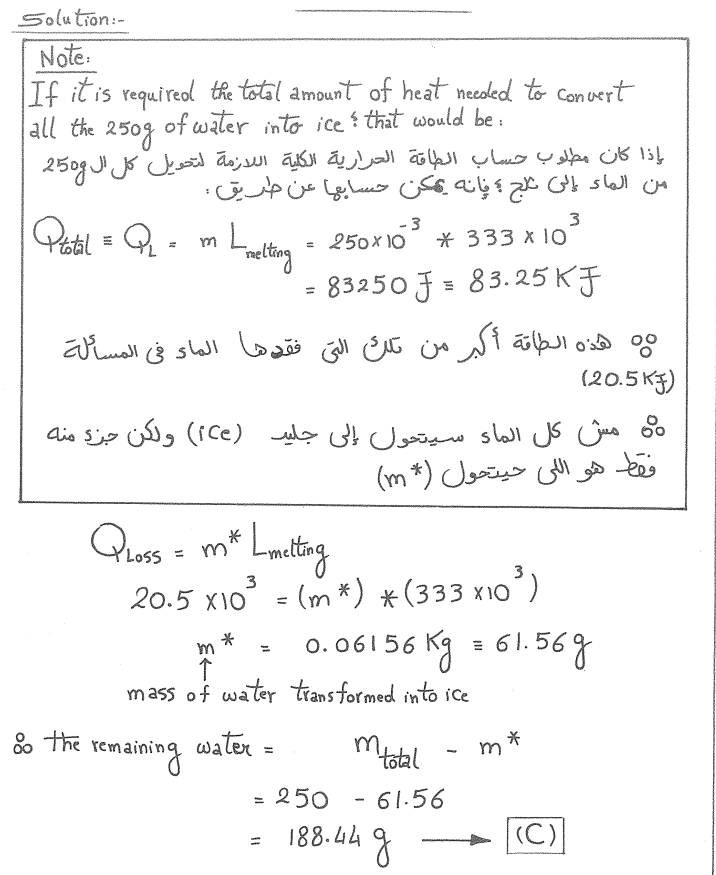 Solution:-
Note:
If it is required the total amount of heat needed to convert
all the 250g of water into ice ؛ that would be :
إذا كان مطلوب حساب الطاقة الحرارية الكلية اللازمة لتحويل كل ال 250g
من الماء إلى ثلج ؛ فإنه يمكن حسابها عن طريق :
Qtotal ≡ QL = m Lmelting = 250x10⁻³ * 333 x 10³
= 83250 J ≡ 83.25 KJ
∴ هذه الطاقة أكبر من تلك التى فقدها الماء فى المسألة
(20.5 KJ)
∴ مش كل الماء سيتحول إلى جليد (ice) ولكن جزء منه
فقط هو اللى حيتحول (m*)
QLoss = m* Lmelting
20.5 x10³ = (m*) * (333 x10³)
m* = 0.06156 Kg ≡ 61.56 g
↑
mass of water transformed into ice
∴ the remaining water = mtotal - m*
= 250 - 61.56
= 188.44 g → (C)